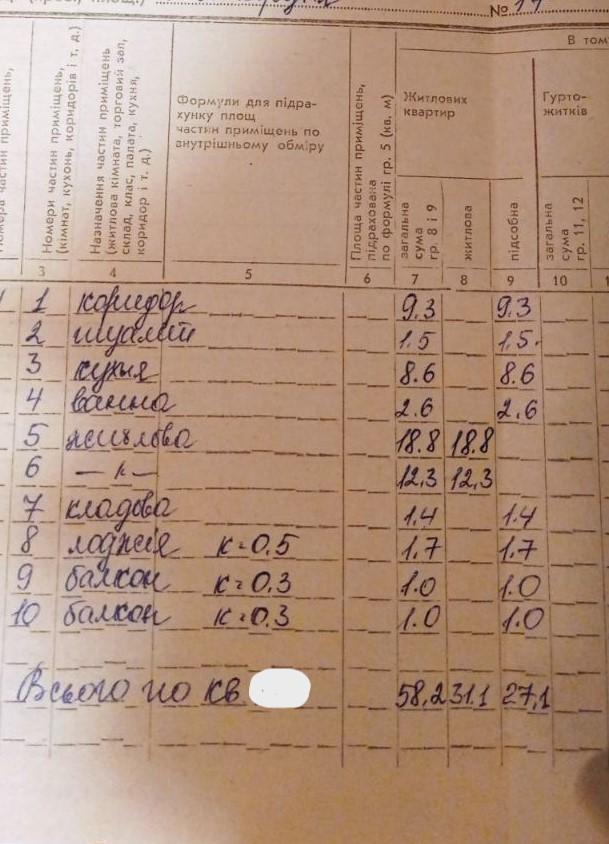 № 14
В тому
Номера частин приміщень,
Номери частин приміщень,
(кімнат, кухонь, коридорів і т. д.)
Назначення частин приміщень
(житлова кімната, торговий зал,
склад, клас, палата, кухня,
коридор і т. д.)
Формули для підра-
хунку площ
частин приміщень по
внутрішньому обміру
Площа частин приміщень,
підрахована
по формулі гр. 5 (кв. м)
Житлових
квартир
Гурто-
житків
загальна
сума
гр. 8 і 9
житлова
підсобна
загальна
сума
гр. 11, 12
3 4 5 6 7 8 9 10
1 коридор 9.3 9.3
2 туалет 1.5 1.5
3 кухня 8.6 8.6
4 ванна 2.6 2.6
5 житлова 18.8 18.8
6 — " — 12,3 12,3
7 кладова 1.4 1.4
8 лоджія к=0.5 1.7 1.7
9 балкон к=0.3 1.0 1.0
10 балкон к=0.3 1.0 1.0
Всього по кв 58,2 31.1 27,1